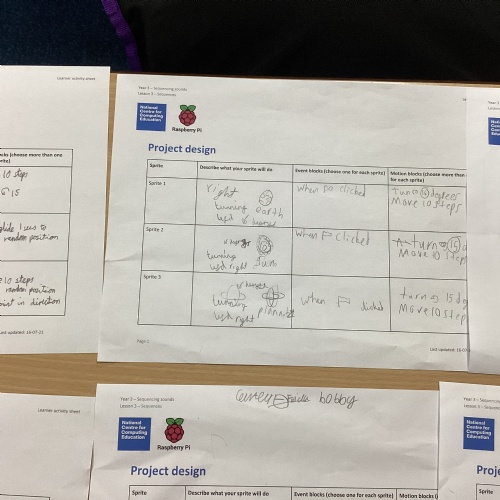 Learner activity sheet
ocks (choose more than one
rite)
10 steps
15
glide 1 secs to
random position
10 steps
random position
point in direction
Last updated: 16-07-21
Year 3 – Sequencing sounds
Lesson 3 – Sequences
National
Centre for
Computing
Education
Raspberry Pi
Project design
Sprite
Describe what your sprite will do
Event blocks (choose one for each sprite)
Motion blocks (choose more than
for each sprite)
Sprite 1
right
turning
earth
when clicked
turn degrees
Move 10 steps
Sprite 2
turning
right
Sun
when clicked
turn 15 d
Move 10 step
Sprite 3
turning
right
when clicked
turn 15 de
Move 10 step
Page 1
Last updated: 16-07
Nat
Cen
Com
Edu
Learner activity sheet
Year 3 – Sequencing sounds
Lesson 3 – Sequences
bobby
National
Centre for
Computing
Education
Raspberry Pi
Project design
Sprite
Describe what your sprite will do
Event blocks (choose one for each sprite)
Motion blocks
Year 3 – Sequencing sounds
Lesson 3 – Sequences
National
Centre for
Computing
Education
Proj
Sprite